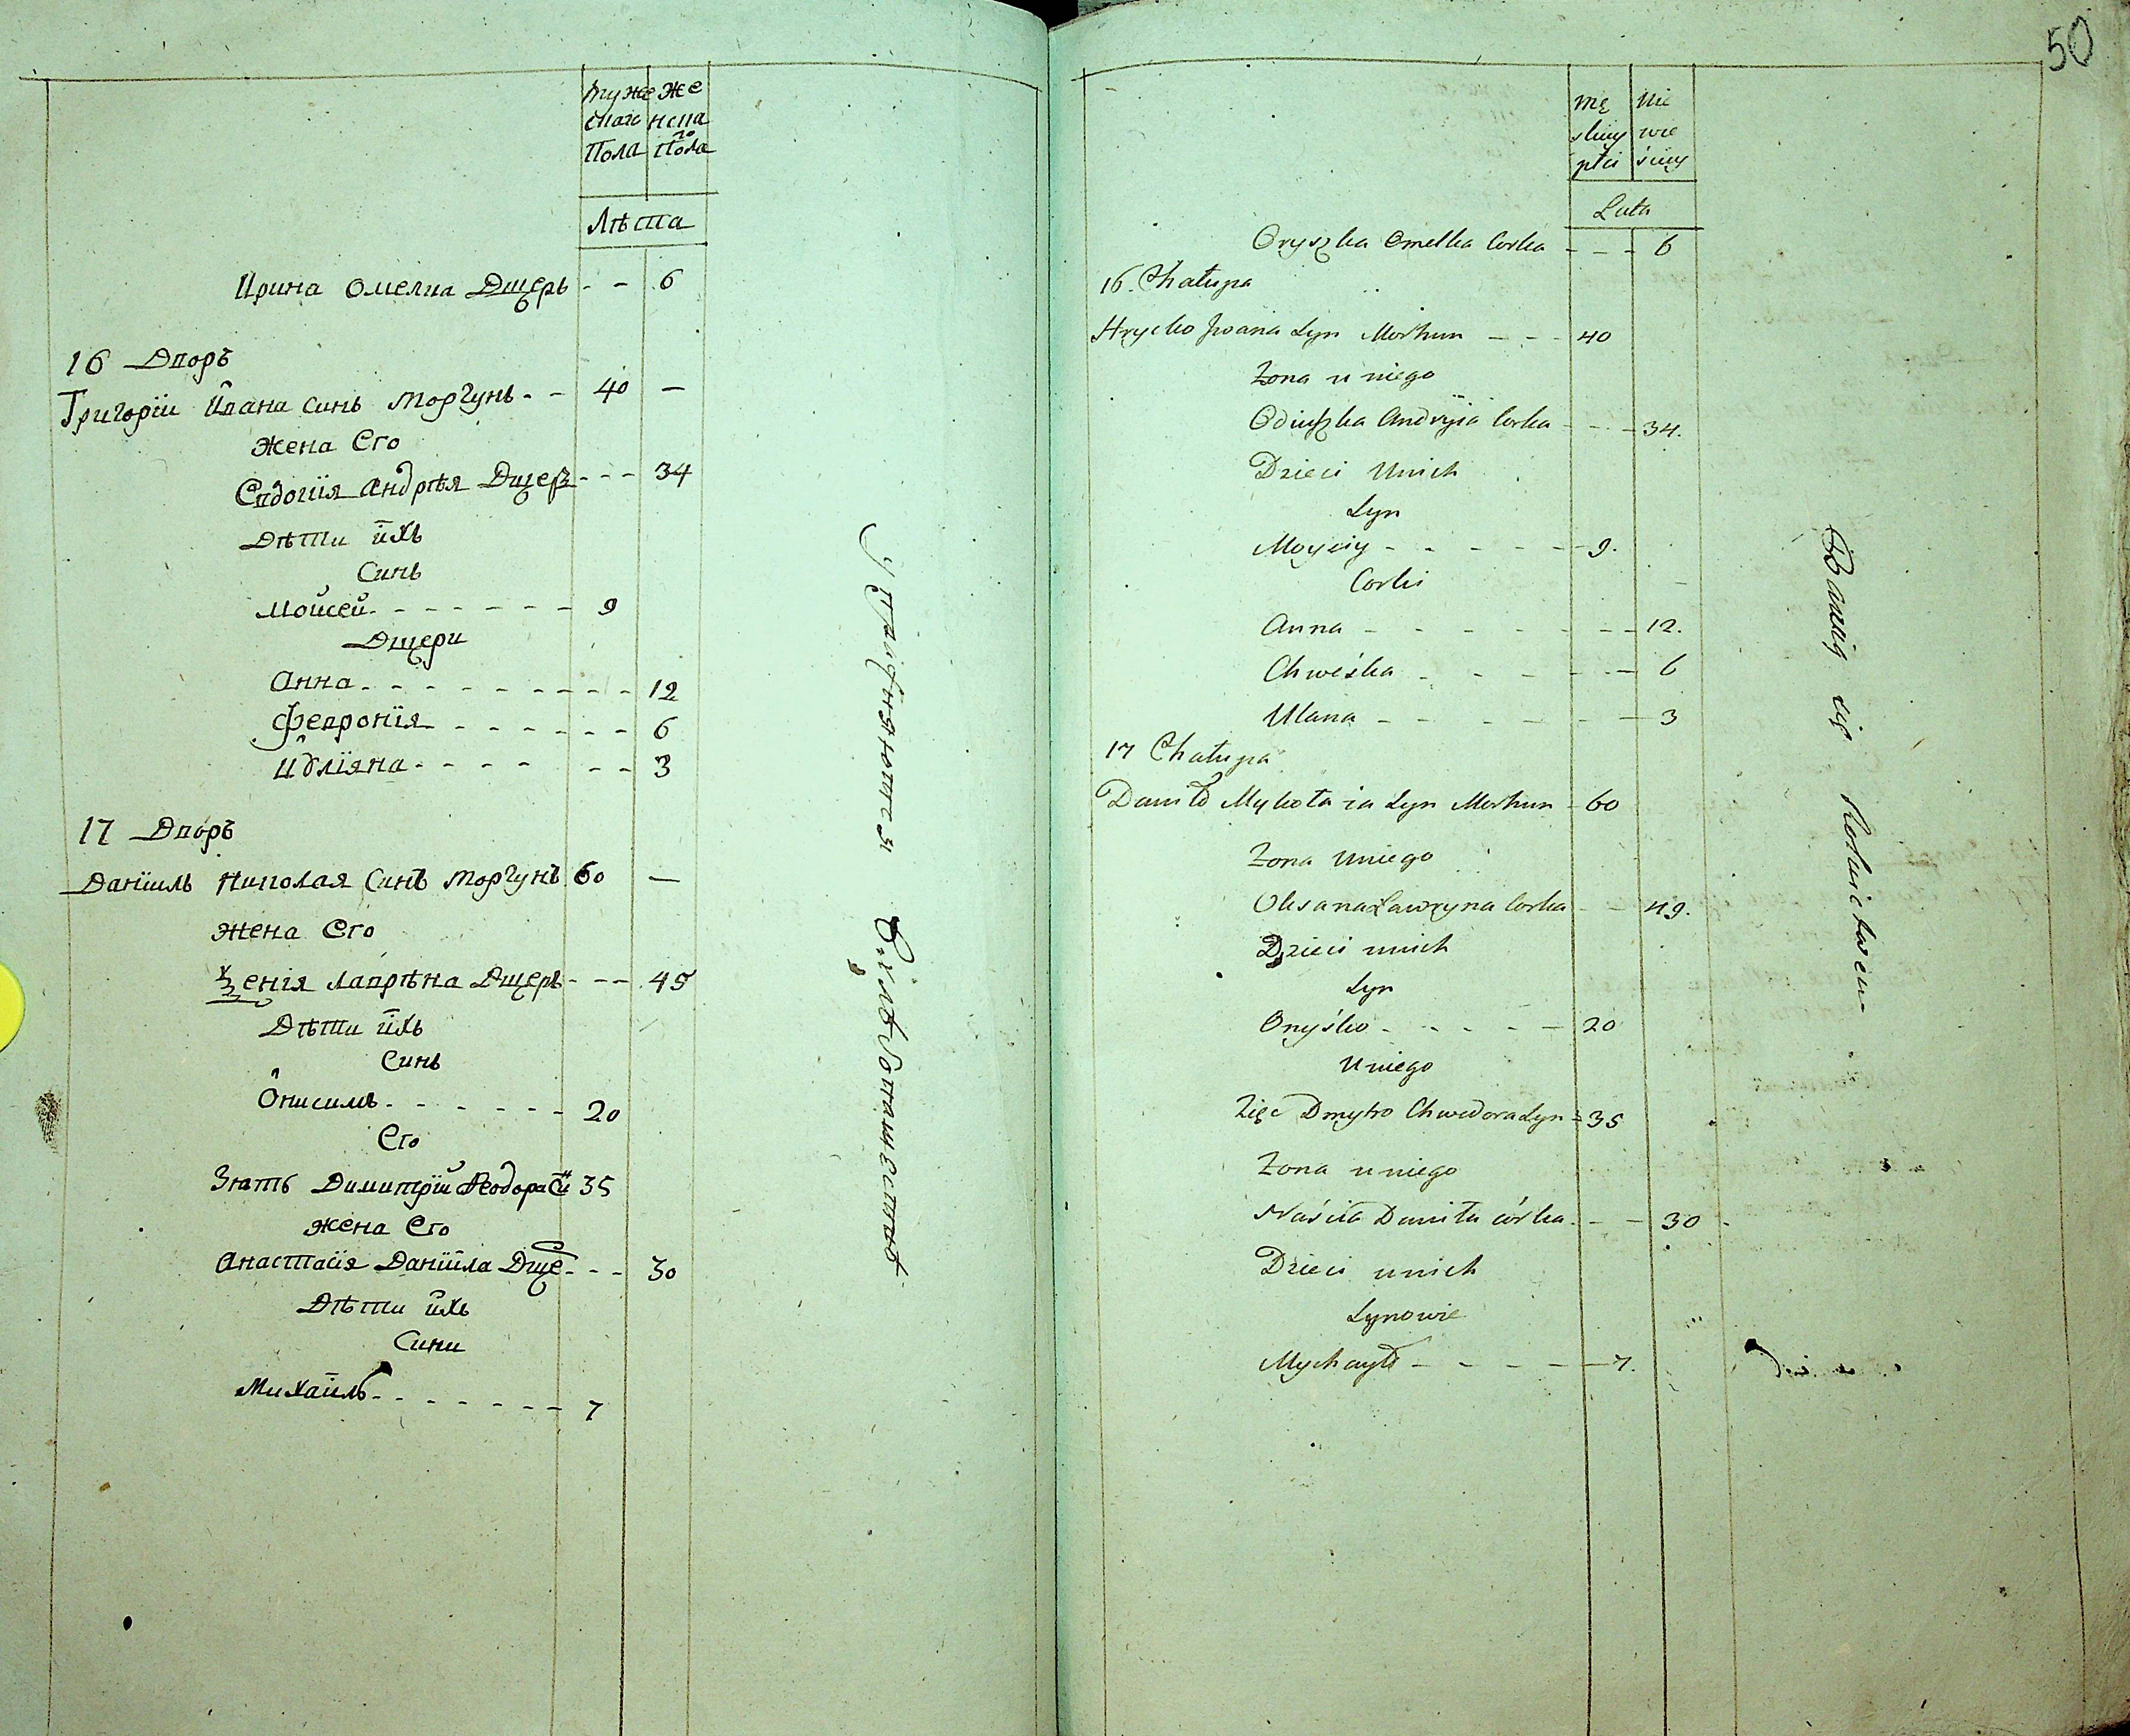 Муже Же
скаго нска
го
Пола Пола
Лѣта
Ирина Омелка Дщерь - - 6
16 Дворъ
Григорїи Ивана Синъ Моргунъ - - 40 —
Жена Его
Евдокїя Андрѣя Дщер - - - 34
Дѣти ихъ
Синъ
Мойсей - - - - - - - 9
Дщери
Анна - - - - - - - - - 12
Февронїя - - - - - - - 6
Иулїяна - - - - - - 3
17 Дворъ
Данїилъ Николая Синъ Моргунъ 60 —
Жена Его
Ѯенія Лаврѣна Дщерь - - - 45
Дѣти ихъ
Синъ
Онисимъ - - - - - - 20
Его
Зять Димитрїи Ѳеодора Си 35
Жена Его
Анастасїя Данїила Дще - - - 30
Дѣти ихъ
Сини
Михаилъ - - - - - - - 7
Упражняются Хлѣбопашествѣ
50
Mę Nie
skiey wie
płci ściey
Lata
Oryszka Omelka Corka - - - 6
16. Chałupa
Hrycko Jwana Syn Morhun - - - 40
Zona u niego
Odiuszka Andryia Corka - - - 34.
Dzieci Unich
Syn
Moysiy - - - - - - 9.
Corki
Anna - - - - - - - 12.
Chweśka - - - - - - 6
Ulana - - - - - - 3
17 Chałupa
Daniło Mykoła ia Syn Morhun - 60
Zona Uniego
Oksana Ławryna Corka - - 49.
Dzieci unich
Syn
Onyśko - - - - - - 20
Uniego
Zięc Dmytro Chwedora Syn - 35
Zona u niego
Naścia Daniła córka - - - 30
Dzieci unich
Synowie
Mychayło - - - - - 7.
Bawią się Rolnictwem